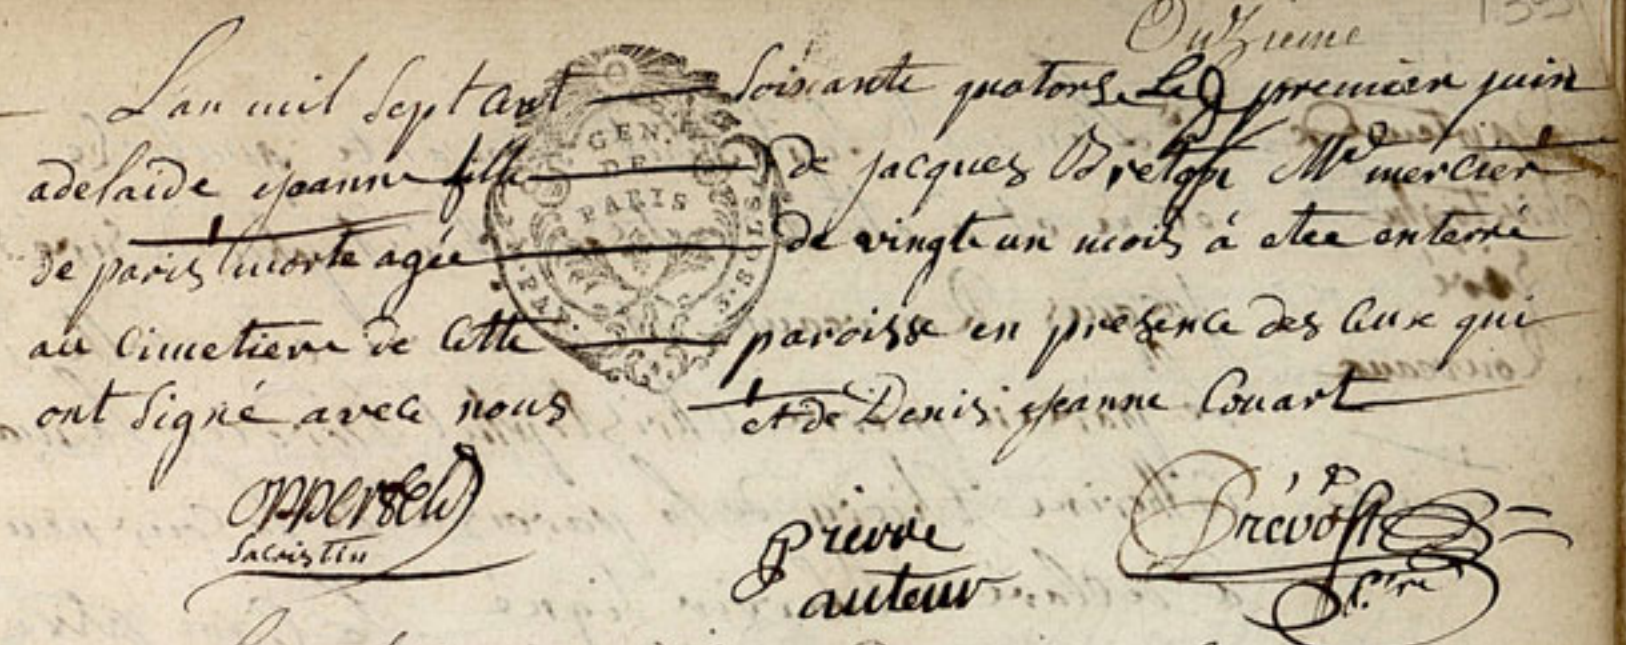 Onzieme
L'an mil Sept Cent Soixante quatorse Le premier juin
adelaide jeanne fille de jacques Breton Md mercier
de paris morte agée de vingt un mois à etee enterré
au Cimetiere de Cette paroisse en presence des Ceux qui
ont Signé avec nous et de Denis jeanne Couart
GEN. DE PARIS
Sacristin
pierre
auteur
Prévost